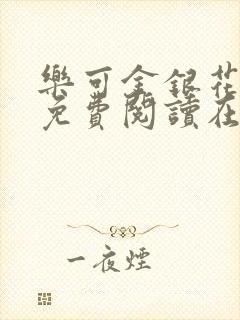 樂可金銀花
免費閱讀在
一夜煙